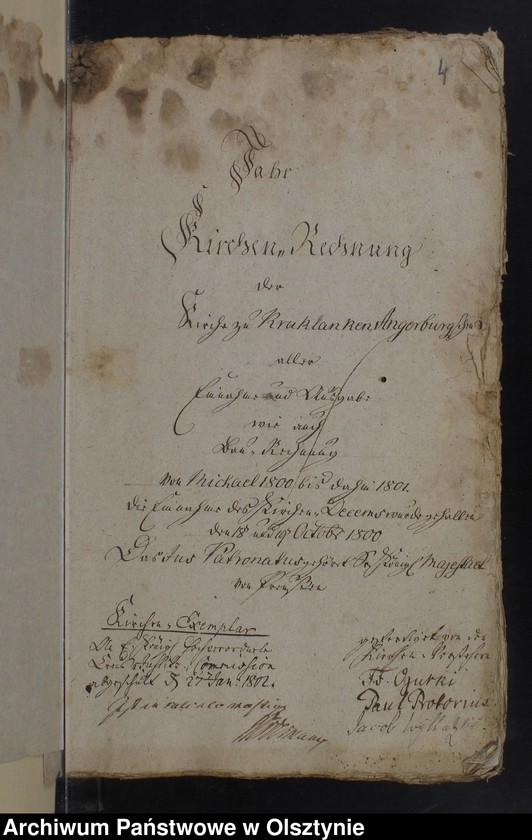 4
Jahr
Kirchen Rechnung
der
Kirche zu Kruklanken Angerburgschen
aller
Einnahme und Ausgabe
wie auch
Bau-Rechnung
von Michael 1800 bis dahin 1801.
die Einnahme des Kirchen-Decems wurde gehalten
den 18 und 19 October 1800
Das Jus Patronatus gehört Sr Königl Majestaet
von Preußen
Kirchen-Exemplar
Commission
abgeschickt d 27 Jan. 1802.
Kirchen-Vorstehern
Paul Protorius
Jacob
Archiwum Państwowe w Olsztynie